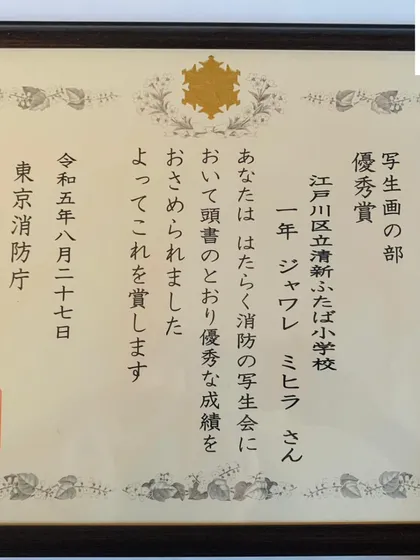 写生画の部
優秀賞
江戸川区立清新ふたば小学校
一年 ジャワレ ミヒラ さん
あなたは はたらく消防の写生会に
おいて頭書のとおり優秀な成績を
おさめられました
よってこれを賞します
令和五年八月二十七日
東京消防庁